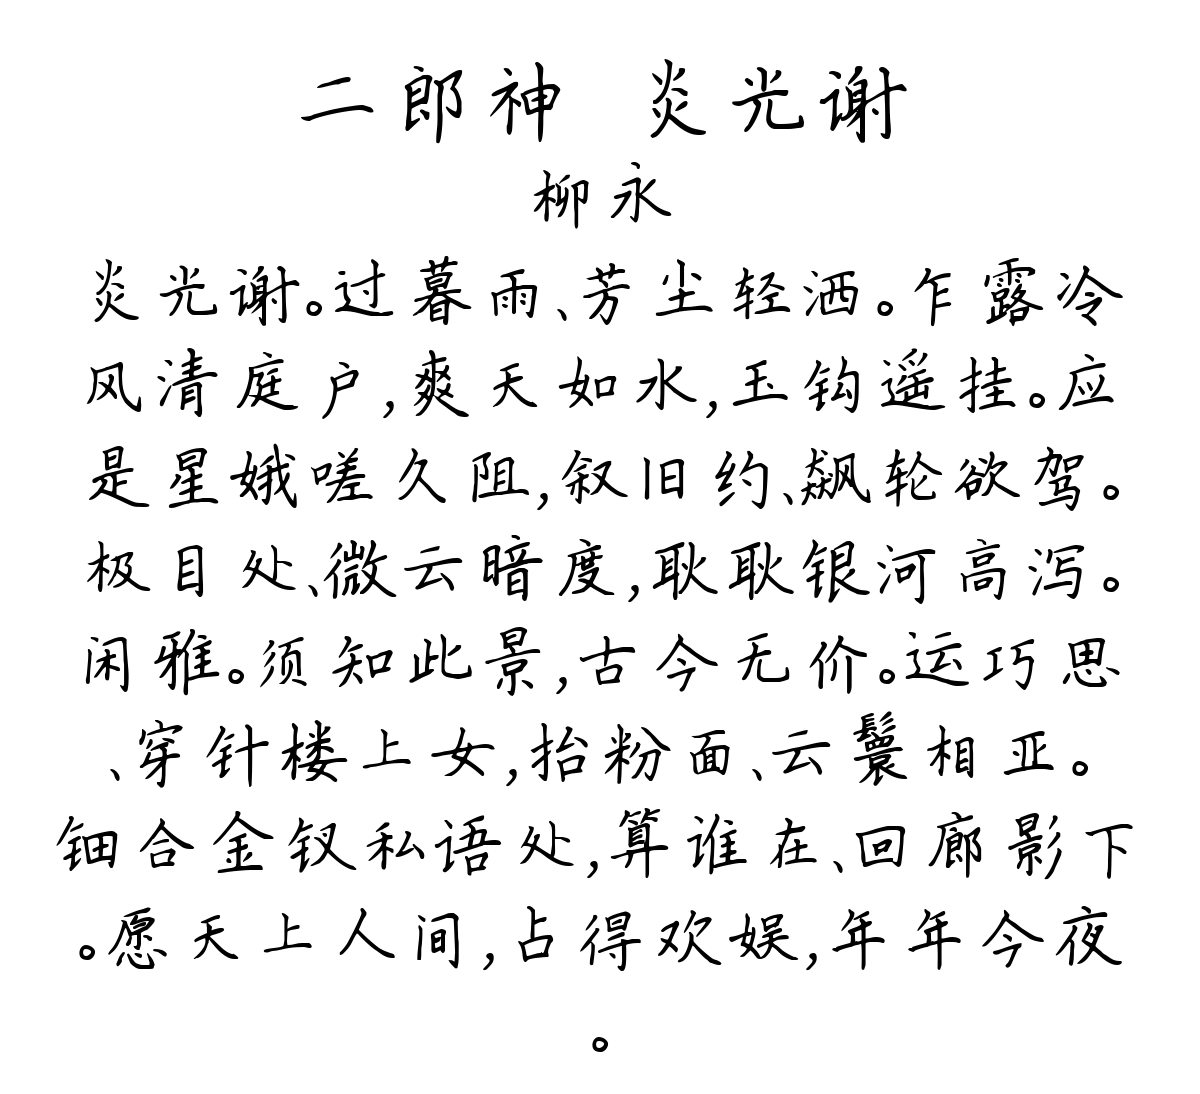 二郎神 炎光谢
柳永
炎光谢。过暮雨、芳尘轻洒。乍露冷
风清庭户,爽天如水,玉钩遥挂。应
是星娥嗟久阻,叙旧约、飙轮欲驾。
极目处、微云暗度,耿耿银河高泻。
闲雅。须知此景,古今无价。运巧思
、穿针楼上女,抬粉面、云鬟相亚。
钿合金钗私语处,算谁在、回廊影下
。愿天上人间,占得欢娱,年年今夜
。